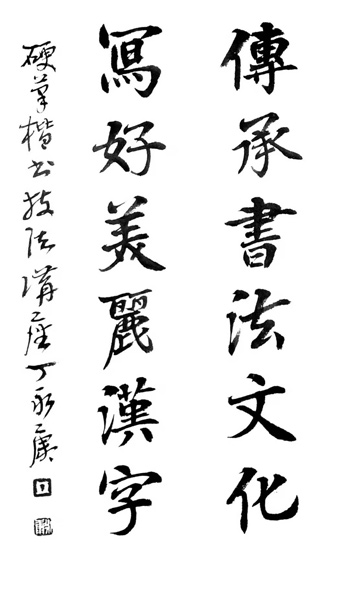 傳承書法文化
寫好美麗漢字
硬筆楷书技法講座丁永康